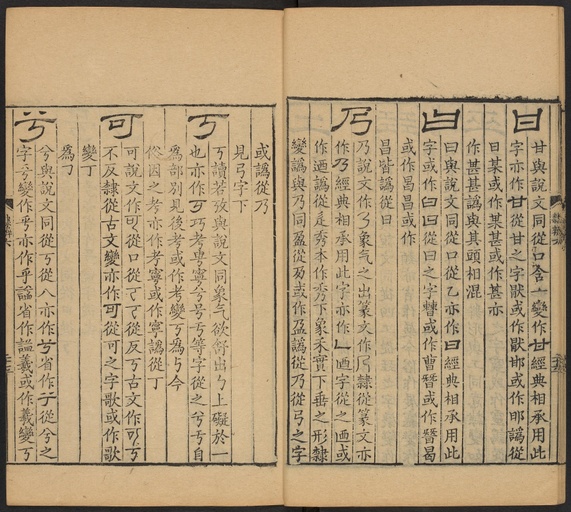 甘與說文同從口含一變作甘經典相承用此
字亦作甘從甘之字猒或作猒邯或作邯譌從
日某或作某甚或作甚亦
作甚甚譌與其頭相混
曰與說文同從口從乙亦作曰經典相承用此
字或作從曰之字朁或作曹朁或作朁曷
或作曷曷或作
昌皆譌從日
乃說文作象气之出篆文作隸從篆文亦
作乃經典相承用此字亦作字從之或
作迺譌從是秀本作秀下象禾實下垂之形隸
變譌與乃同盈從或作盈譌從乃從弓之字
或譌從乃
見弓字下
丂讀若攷與說文同象气欲舒出上礙於一
也亦作丂考粤寧兮号亏等字從之兮亏自
為部別見後考或作考變丂為今
俗因之考亦作考寧或作寧譌從丁
可說文作可從口從古文作可
不反隸從古文變亦作可從可之字歌或作歌
變丁
為
兮與說文同從丂從八亦作兮省作從兮之
字乎變作乎亦作乎謚省作謚羲或作羲變丂